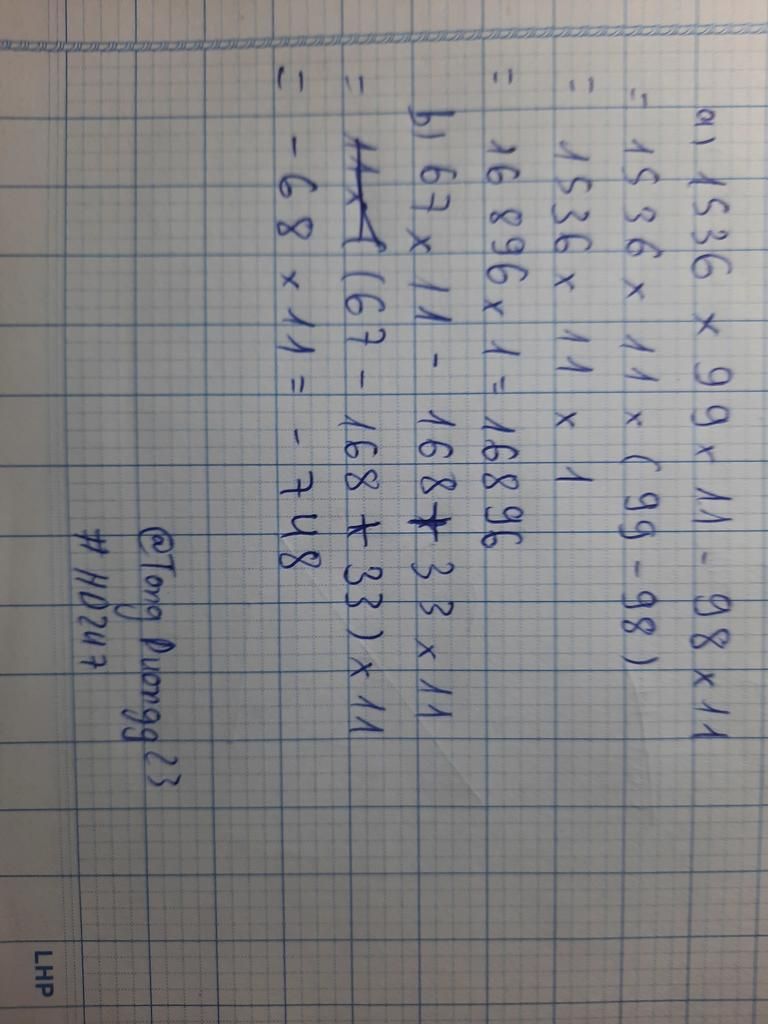 a) 1536 x 99 x 11 - 98 x 11
= 1536 x 11 x (99 - 98)
= 1536 x 11 x 1
= 16 896 x 1 = 16896
b) 67 x 11 - 168 + 33 x 11
= (67 - 168 + 33) x 11
= - 68 x 11 = - 748
@Tong Duongg 23
# HD247
LHP